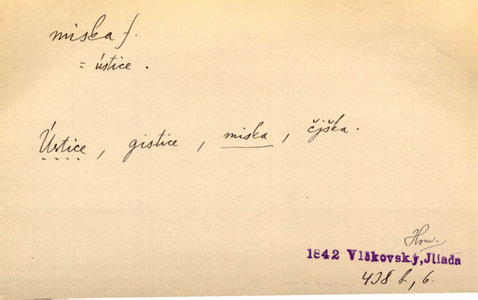 miska f.
= ústice.
Ústice, gistice, miska, čjška.
Hom.
1842 Vlčkovský, Jliada
438 b, 6.